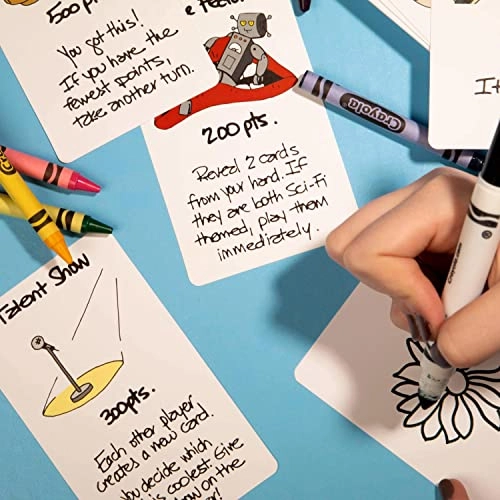 500pts
You got this!
If you have the
fewest points,
take another turn.
200pts.
Reveal 2 cards
from your hand. If
they are both Sci-Fi
themed, play them
immediately.
Crayola
It
Talent Show
300pts.
Each other player
creates a new card.
you decide which
is coolest. Give
on the